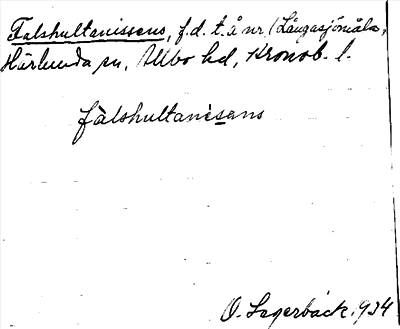 Falshultanissens, f.d. t. å nr. 1 Långasjömåla,
Härlunda sn, Allbo hd, Kronob. l.
fàlshultanisans
O. Lagerbäck. 934